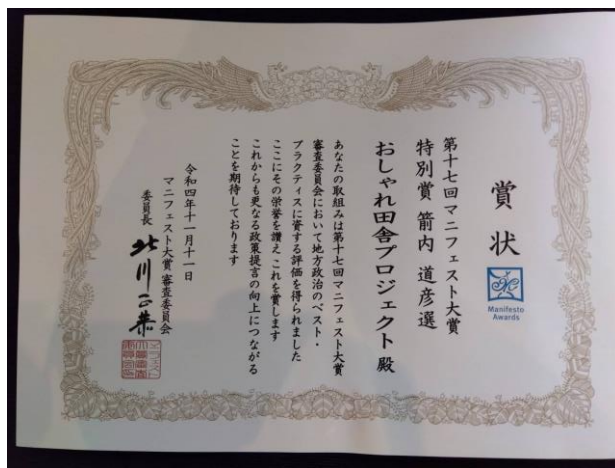 賞状
Manifesto
Awards
第十七回マニフェスト大賞
特別賞 箭内 道彦選
おしゃれ田舎プロジェクト 殿
あなたの取組みは第十七回マニフェスト大賞
審査委員会において地方政治のベスト・
プラクティスに資する評価を得られました
ここにその栄誉を讃え これを賞します
これからも更なる政策提言の向上につながる
ことを期待しております
令和四年十一月十一日
マニフェスト大賞 審査委員会
委員長 北川正恭